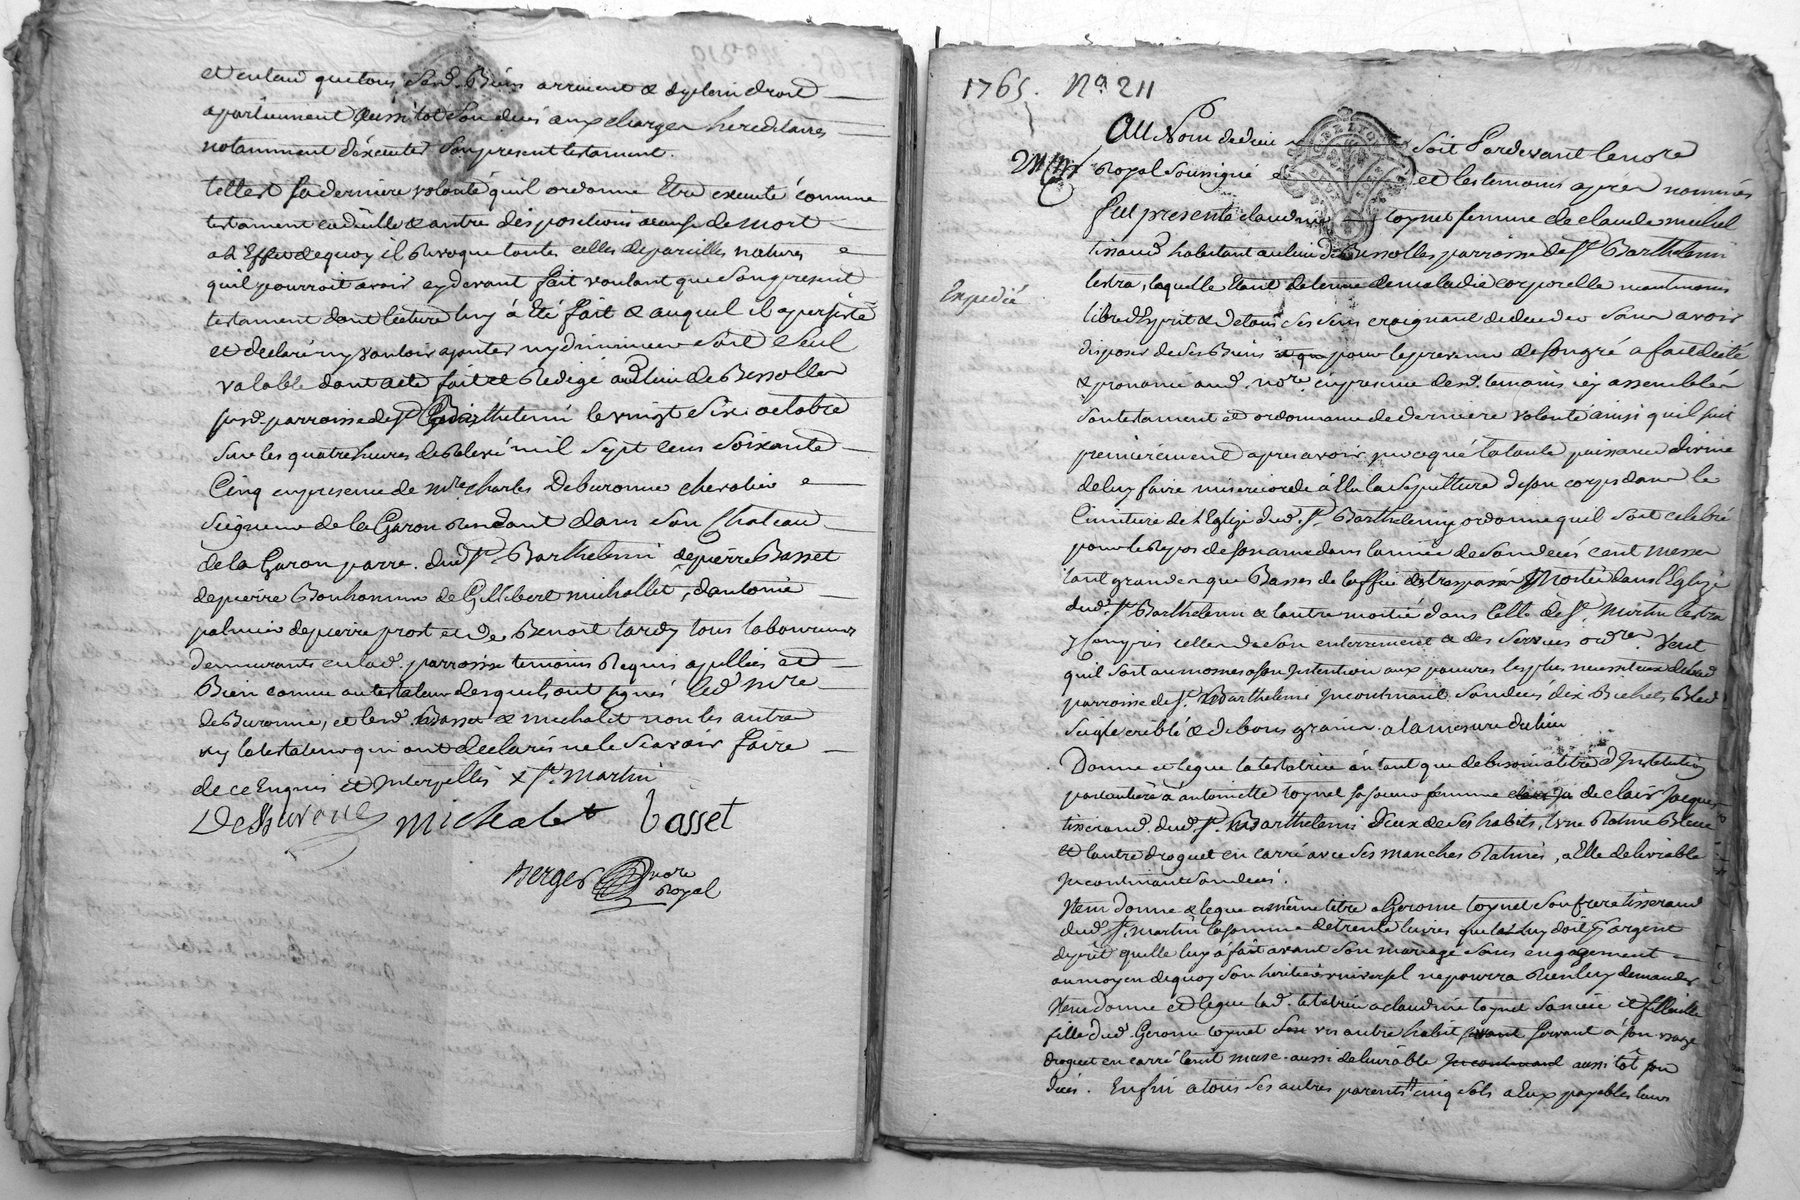 et entend que tous sesd. Biens arrivent & de plein droit
apartiennent aussitot son deces aux charges hereditaires
notamment d'executer son present testament.
telle est sa derniere volonté qu'il ordonne Etre executé comme
testament codicille & autre dispositions a cause de mort
a l'Effet de quoy il Revoque toutes celles de pareilles natures
qu'il pourroit avoir cydevant fait voulant que son present
testament dont lecture luy à Eté fait & auquel il a persisté
et declaré ny vouloir ajouter ny diminuer soit seul
valable dont acte fait et Redigé aud. lieu de Bessolles
susd. parroisse de St. Barthelemi le vingt six octobre
sur les quatre heures de Relevé mil sept cens soixante
Cinq en presence de mre. charles DeBuronne chevalier
seigneur de la Garon Residant dans son Chateau
de la Garon parre. dud. St. Barthelemi de pierre Basset
de pierre Bonhomme de Gillibert michallet, d'antoine
palmier de pierre prost et de Benoit tardy tous laboureurs
demeurants en lad. parroisse temoins Requis apellées et
Bien connu au testateur desquels ont signés led. mre
de Buronne, et lesd. Basset & michalet non les autre
ny le testateur qui ont declarés ne le scavoir faire
de ce Enquis et Interpellés x St. Martin
DeBurone michalet basset
Berger nore Royal
1765. No. 211
Au Nom de dieu soit Pardevant le nore
Royal soussigné et les temoins après nommés
fut presente claudine toynet femme de claude michel
tissrand habitant au lieu de Bussolles parroisse de St. Barthelemi
lestra, laquelle Etant detenue de maladie corporelle neantmoins
Expedié
libre d'Esprit & de tous ses sens craignant de deceder sans avoir
disposer de ses Biens pour le prevenir de son gré a fait dicté
& prononcé aud. nore en presence desd. temoins icy assemblés
son testament et ordonnance de derniere volonté ainsi qu'il suit
premierement apres avoir invoqué la toute puissance divine
de luy faire misericorde à Elu la sepulture de son corps dans le
Cimetiere de l'Eglize dud. St. Barthelemy ordonne qu'il soit celebré
pour le Repos de son ame dans l'année de son deces cent messes
tant grandes que Basses de l'office des trespassés Moitié dans l'Eglize
dud. St. Barthelemi & l'autre moitié dans Celle de St. Martin lestra
y Compris celles de son enterrement & des services ordres. Veut
qu'il soit aumosnes a son Intention aux pauvres les plus necessiteux de lad.
parroisse de St. Barthelemi Incontinant son deces dix Bichets Bled
seigle criblé & de bons grains a la mesure du lieu
Donne et legue la testatrice en tant que de besoin a titre d'Institution
particuliere à antoinette toynet sa soeur femme de clair Jacquet
tisserand dud. St. Barthelemi deux de ses habits, l'une Ratine Bleue
et l'autre droguet en carré avec ses manches Ratines, a Elle delivrable
Incontinant son deces.
Item donne & legue a même titre a Gerome toynet son frere tisserand
dud. St. martin la somme de trente livres que led. luy doit pr argent
de prêt quelle luy à fait avant son mariage sans engagement
au moyen de quoy son heritier universel ne pourra Rien luy demander
Item donne et legue lad. testatrice a claudine toynet sa niece et filleule
fille dud. Gerome toynet un autre habit servant a son usage
droguet en carré teint musc aussi delivrable Incontinand aussi tôt son
deces. Enfin a tous ses autres parents cinq sols a Eux payables leurs